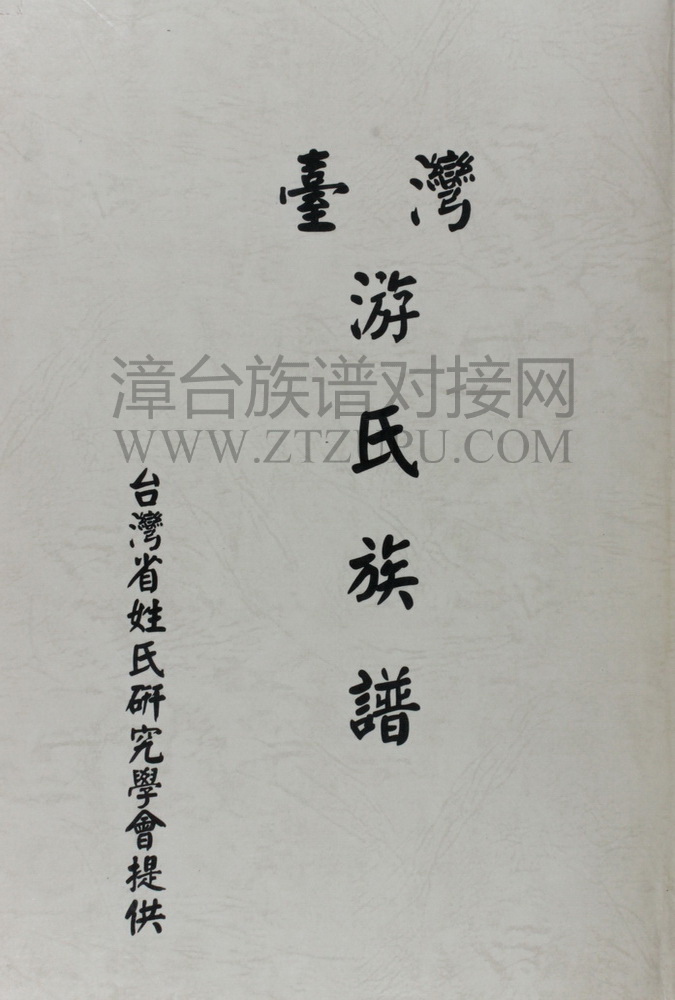 臺灣
游氏族譜
台灣省姓氏研究學會提供
漳台族谱对接网
WWW.ZTZUPU.COM